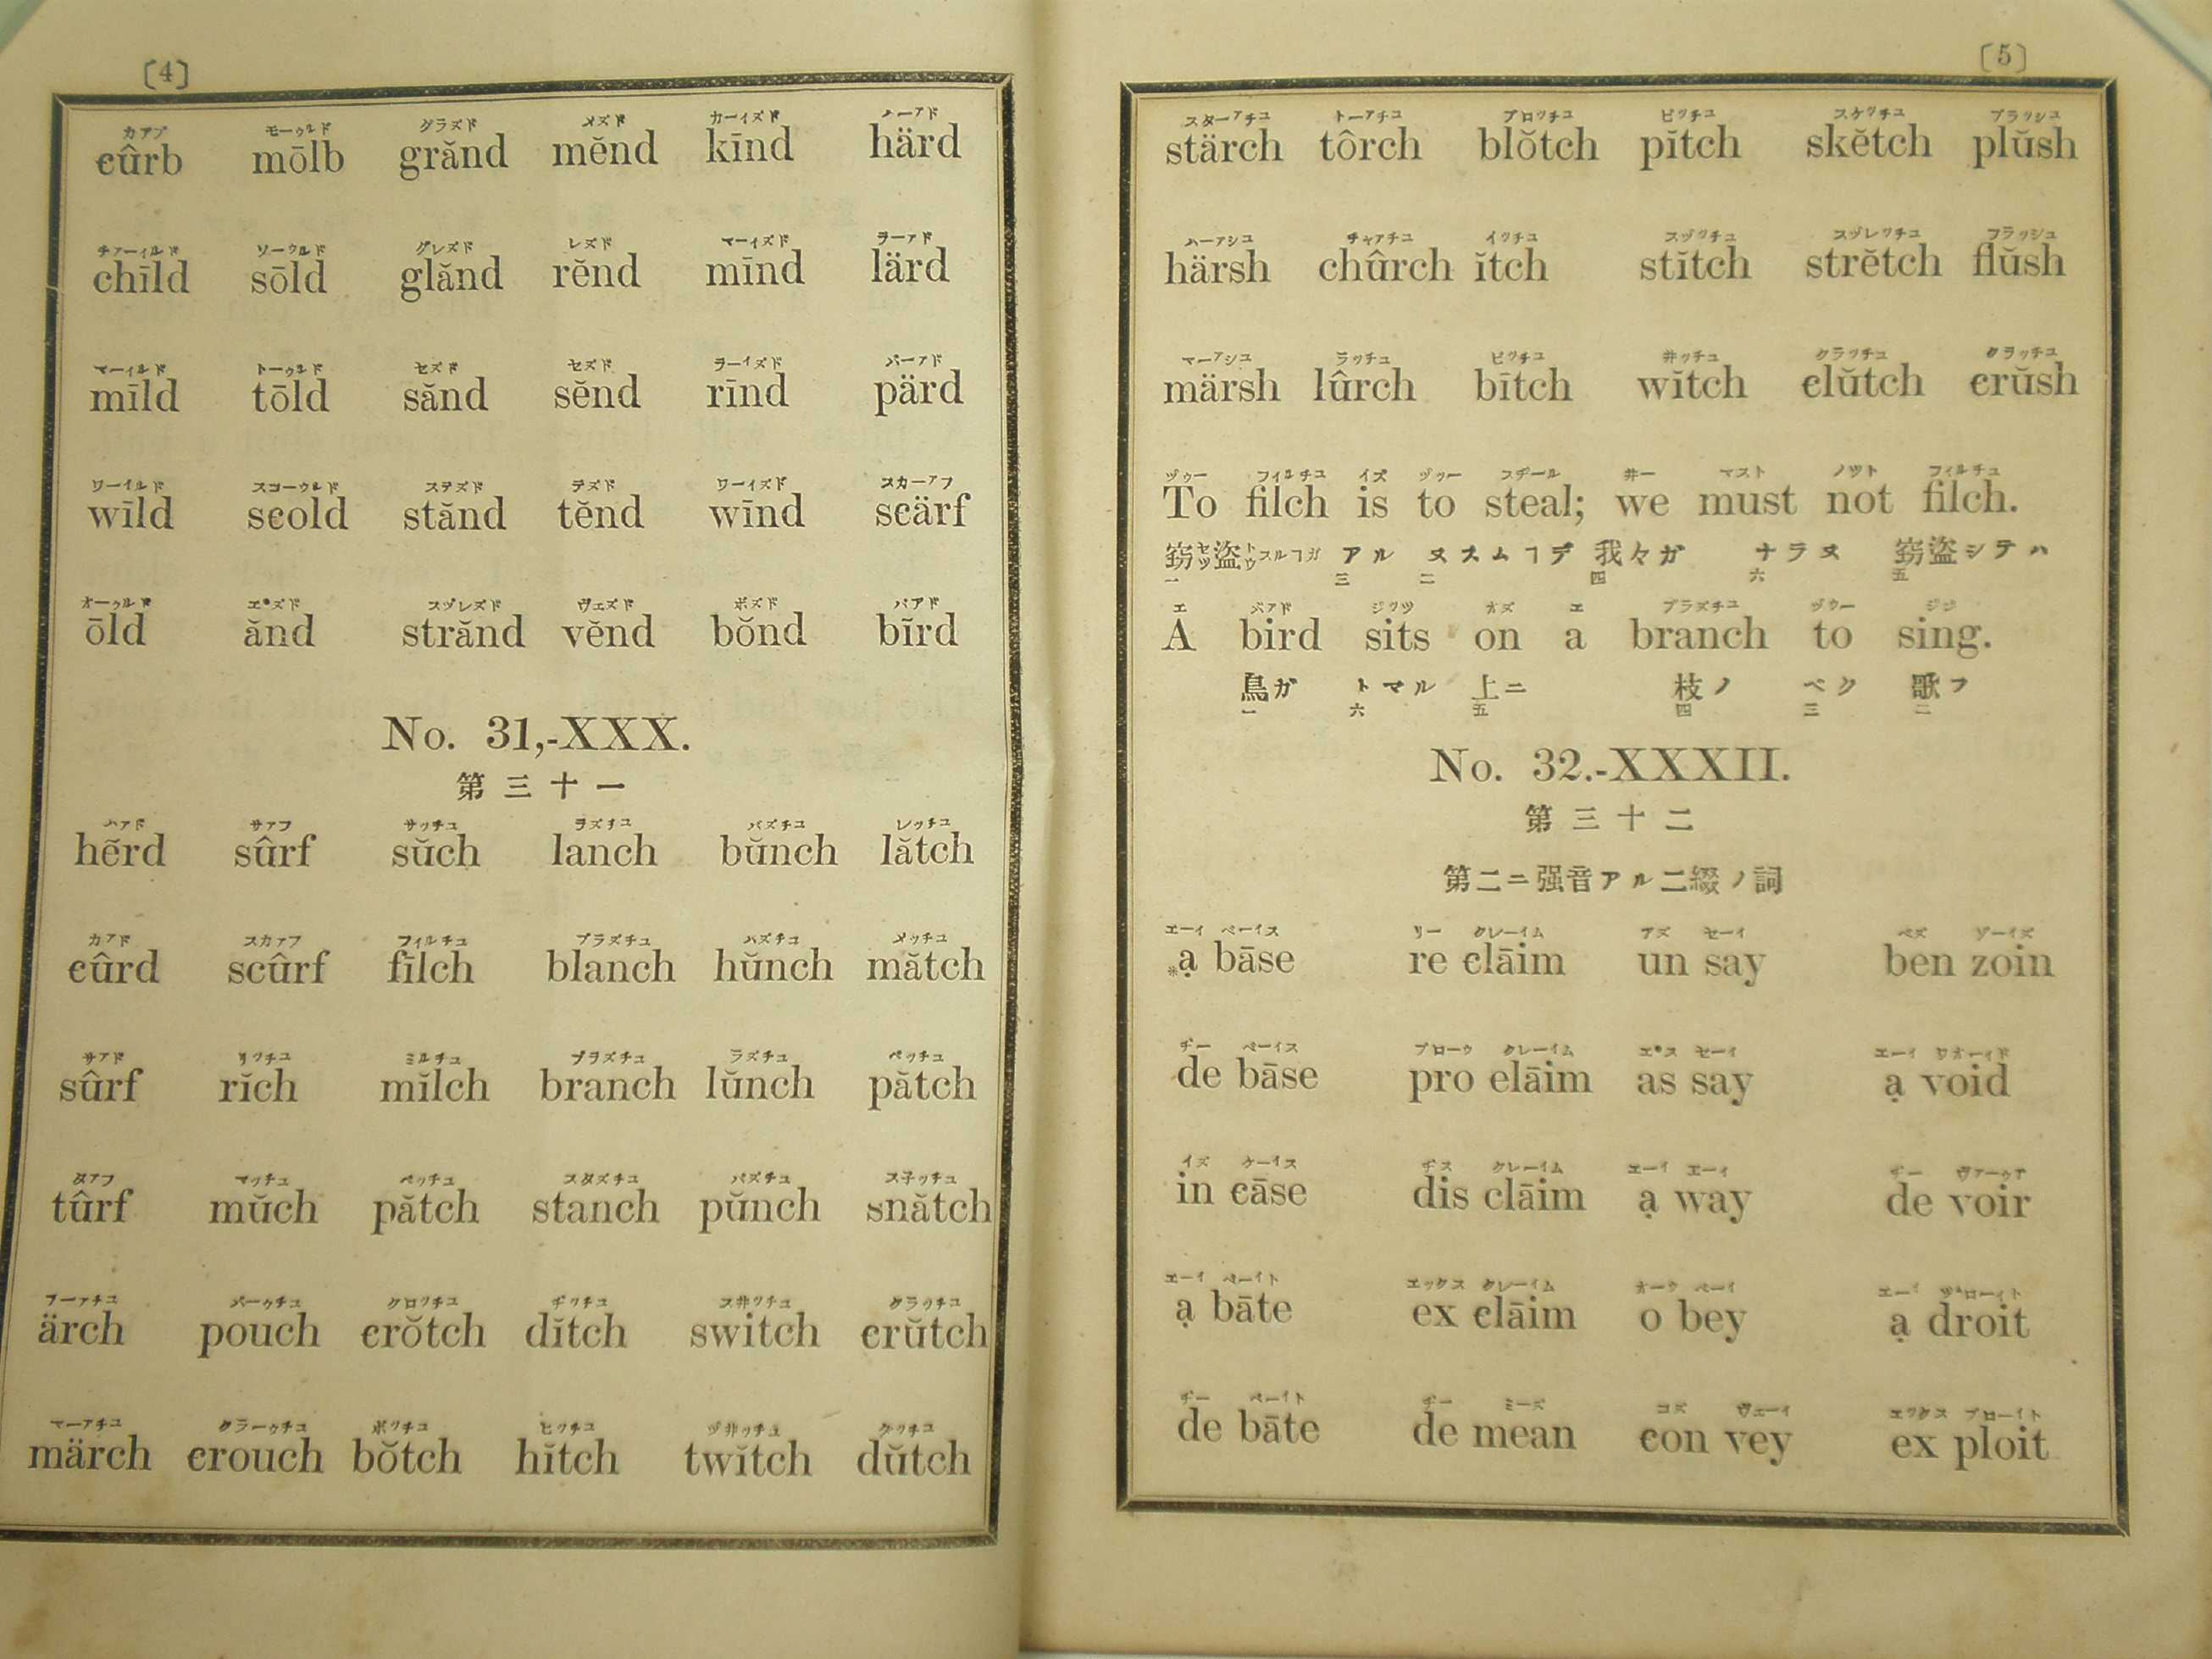 [4]
カアブ モーゥルド グラズド メズド カーィズド ハーアド
cûrb mōlb grănd mĕnd kīnd härd
チァーィルド ソーウルド グレズド レズド マーイズド ラーアド
chīld sōld glănd rĕnd mīnd lärd
マーィルド トーゥルド セズド セズド ラーイズド パーアド
mīld tōld sănd sĕnd rīnd pärd
ワーイルド スコーウルド ステズド テズド ワーイズド スカーアフ
wīld scold stănd tĕnd wīnd scärf
オーゥルド スヅレズド ヴェズド ボズド バアド
ōld ănd strănd vĕnd bŏnd bĭrd
No. 31,-XXX.
第三十一
ハァド サァフ サッチュ ラズチュ バズチュ レッチュ
hĕrd sûrf sŭch lanch bŭnch lătch
カアド スカァフ フィルチュ ブラズチュ ハズチュ メッチュ
cûrd scûrf fĭlch blanch hŭnch mătch
サアド リッチュ ミルチュ ブラズチュ ラズチュ ペッチュ
sûrf rĭch mĭlch branch lŭnch pătch
タアフ マッチュ ペッチュ スタズチュ パズチュ ス子ッチュ
tûrf mŭch pătch stanch pŭnch snătch
アーァチュ パーゥチュ クロッチュ ヂッチュ ス井ッチュ クラッチュ
ärch pouch crŏtch dĭtch switch crŭtch
マーアチュ クラーゥチュ ボッチュ ヒッチュ ヅ井ッチュ ダッチュ
märch crouch bŏtch hĭtch twĭtch dŭtch
[5]
スターアチユ トーアチユ ブロッチュ ピッチュ スケッチュ プラッシュ
stärch tôrch blŏtch pĭtch skĕtch plŭsh
ハーアシユ チャアチユ イッチュ スヅッチュ スヅレッチュ フラッシュ
härsh chûrch ĭtch stĭtch strĕtch flŭsh
マーアシユ ラッチュ ビッチュ 井ッチュ クラッチュ クラッチュ
märsh lûrch bĭtch wĭtch clŭtch crŭsh
ヅゥー フィルチュ イズ ヅゥー スヂール 井ー マスト ノット フィルチュ
To filch is to steal; we must not filch.
窃セツ盗トウスルヿガ アル ヌスムヿデ 我々ガ ナラヌ 窃盗シテハ
一 三 二 四 六 五
エ バアド ジッツ オズ エ ブラズチユ ヅウー ジジ
A bird sits on a branch to sing.
鳥ガ トマル 上ニ 枝ノ ベク 歌フ
一 六 五 四 三 二
No. 32.-XXXII.
第三十二
第二ニ强音アル二綴ノ詞
エーイ ベーイス リー クレーイム アズ セーイ ベズ ゾーイズ
※ạ bāse re clāim un say ben zoin
ヂー ベーイス プローウ クレーイム セーイ エーイ ワオーイド
de bāse pro elāim as say ạ void
イズ ケーイス ヂス クレーイム エーイ エーィ ヂー ヴァーゥア
in cāse dis clāim ạ way de voir
エーイ ベーイト エックス クレーイム オーウ ベーイ エーイ
ạ bāte ex clāim o bey ạ droit
ヂー ベーイト ヂー ミーズ コズ ヴェーイ エックス プローイト
de bāte de mean con vey ex ploit